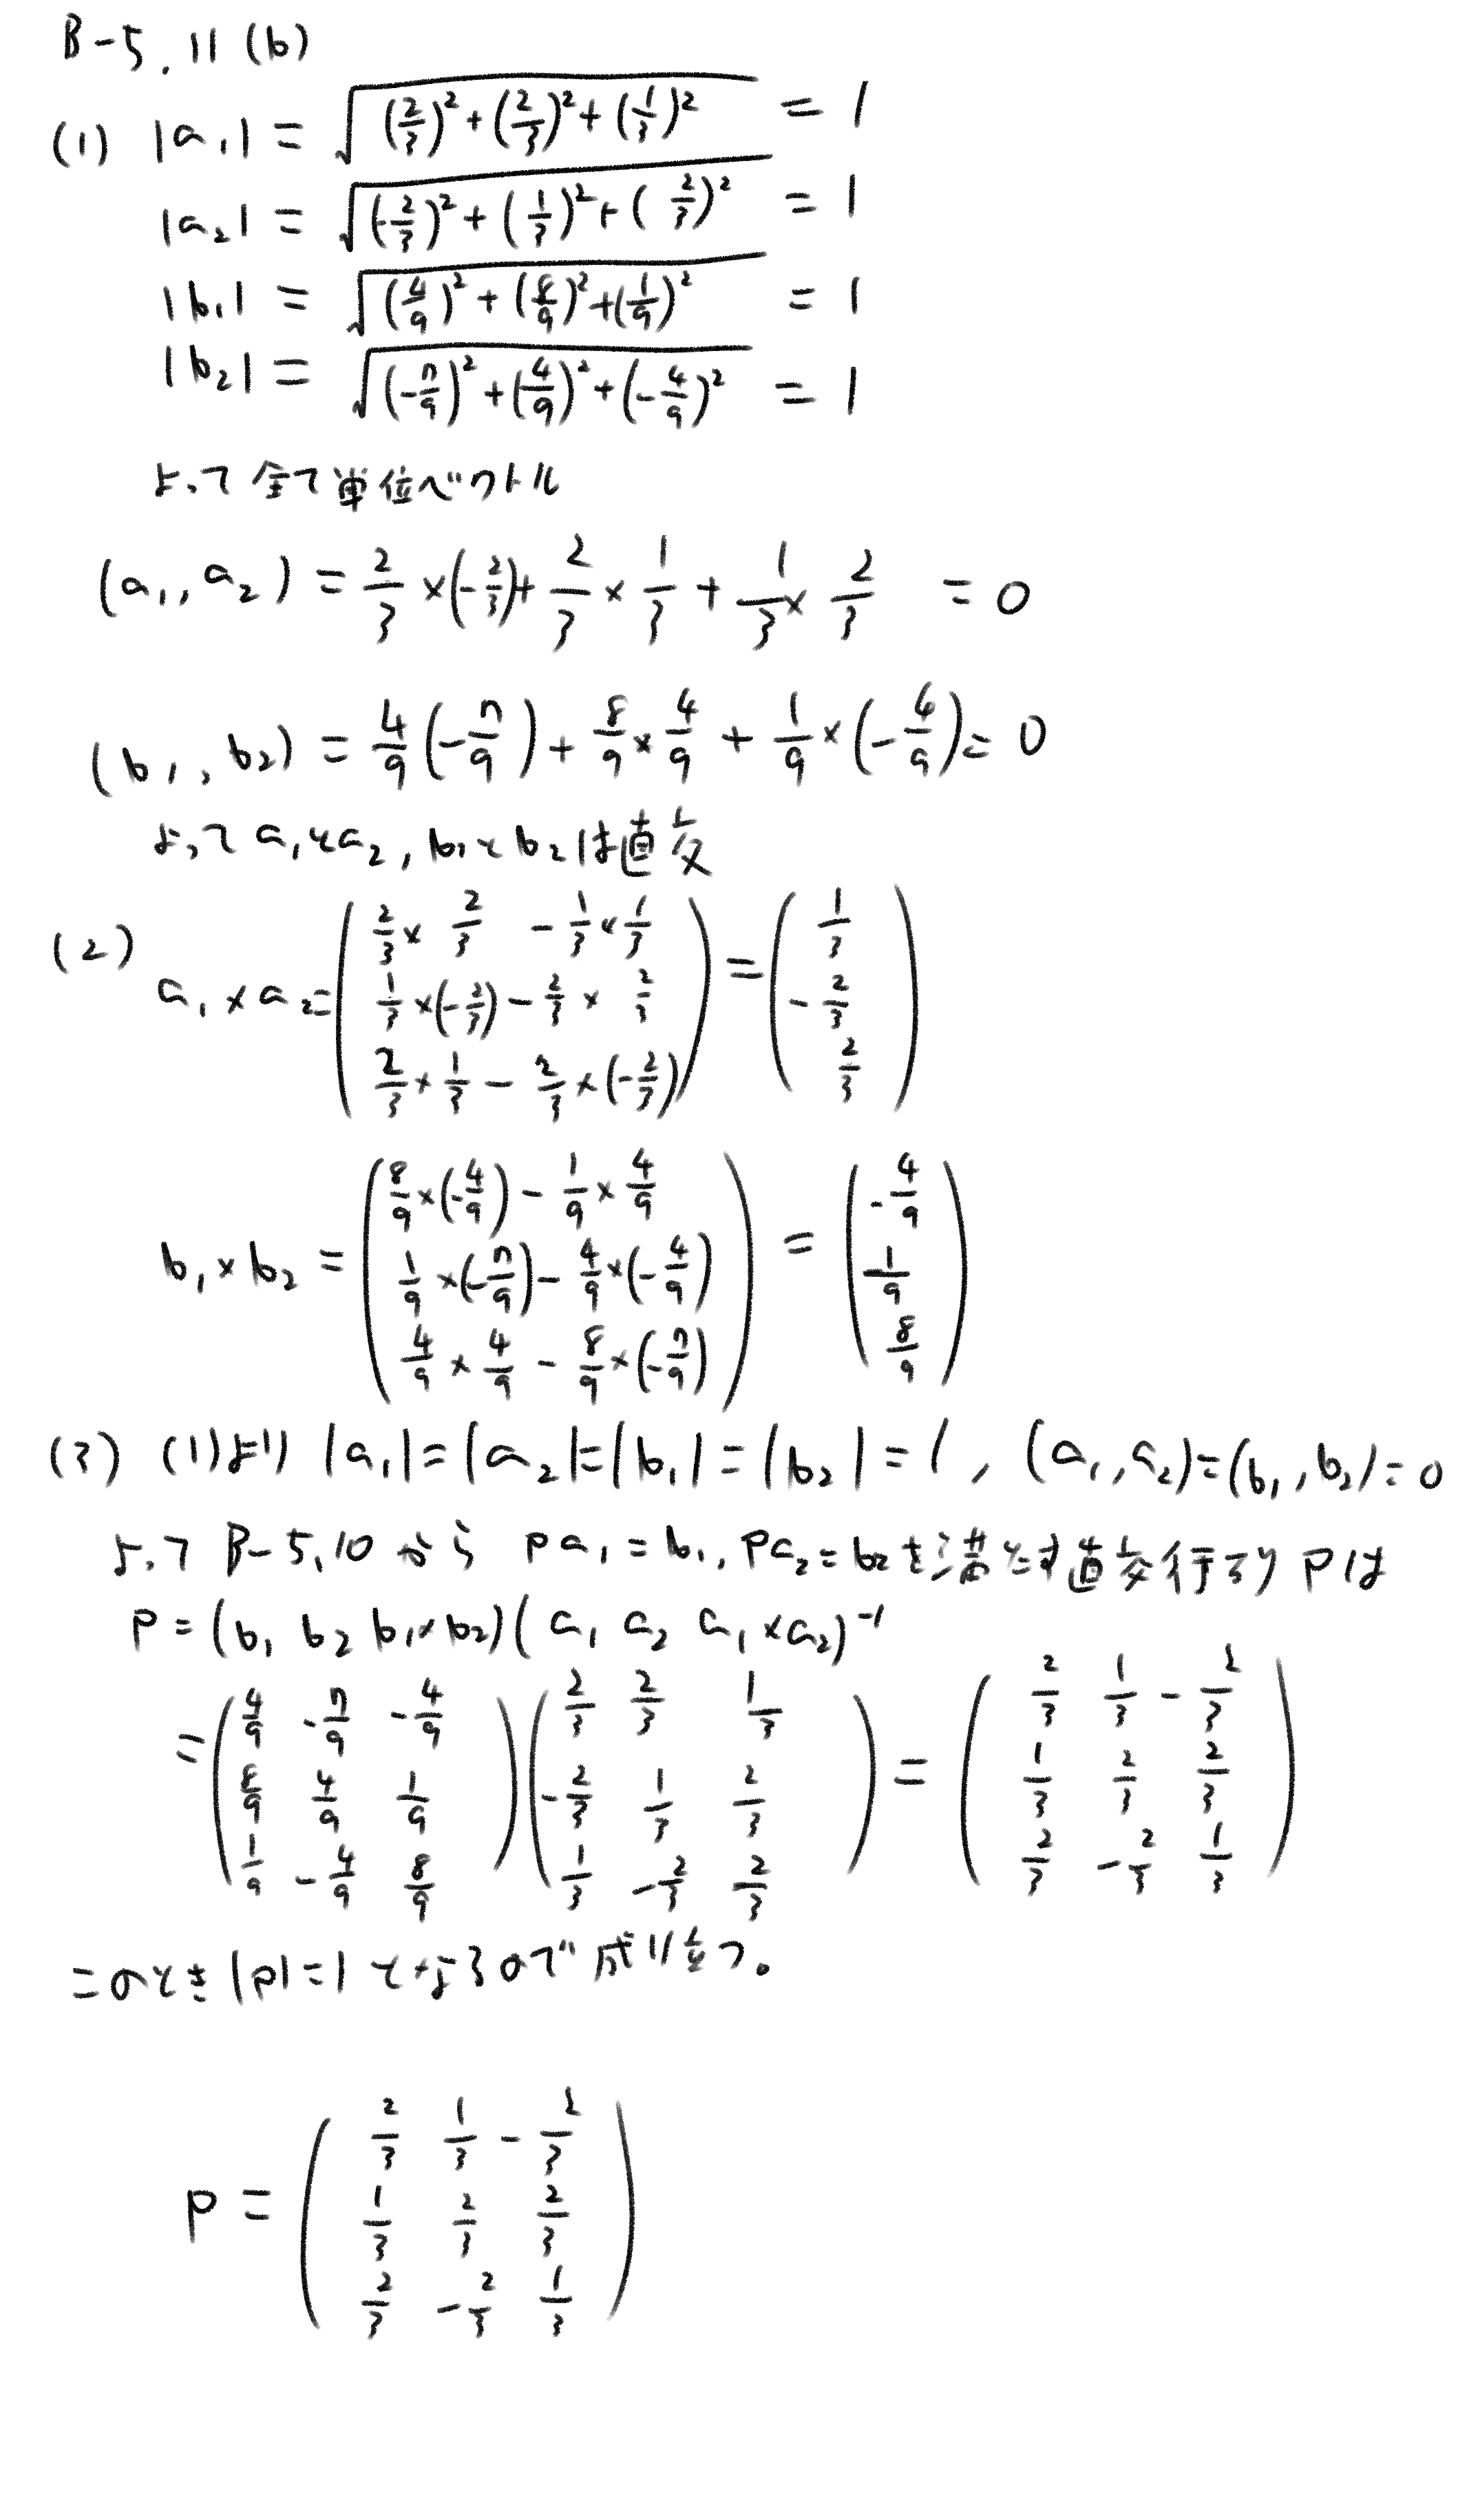 B-5.11(b)
(1) |a₁| = √((2/3)²+(2/3)²+(1/3)²) = 1
|a₂| = √((-2/3)²+(1/3)²+(2/3)²) = 1
|b₁| = √((4/9)²+(8/9)²+(1/9)²) = 1
|b₂| = √((-7/9)²+(4/9)²+(-4/9)²) = 1
よって全て単位ベクトル
(a₁, a₂) = 2/3×(-2/3)+2/3×1/3+1/3×2/3 = 0
(b₁, b₂) = 4/9(-7/9)+8/9×4/9+1/9×(-4/9) = 0
よってa₁とa₂, b₁とb₂は直交
(2)
a₁×a₂ = (2/3×2/3 -1/3×1/3
1/3×(-2/3)-2/3×2/3
2/3×1/3-2/3×(-2/3)) = (1/3
-2/3
2/3)
b₁×b₂ = (8/9×(-4/9)-1/9×4/9
1/9×(-7/9)-4/9×(-4/9)
4/9×4/9-8/9×(-7/9)) = (-4/9
1/9
8/9)
(3) (1)より |a₁|=|a₂|=|b₁|=|b₂|=1, (a₁,a₂)=(b₁,b₂)=0
よって B-5.10から Pa₁=b₁, Pa₂=b₂を満たす直交行列Pは
P=(b₁ b₂ b₁×b₂)(a₁ a₂ a₁×a₂)⁻¹
=(4/9 -7/9 -4/9
8/9 4/9 1/9
1/9 -4/9 8/9)(2/3 2/3 1/3
-2/3 1/3 2/3
1/3 -2/3 2/3) = (2/3 1/3 -2/3
1/3 2/3 2/3
2/3 -2/3 1/3)
このとき|P|=1となるので成り立つ。
P = (2/3 1/3 -2/3
1/3 2/3 2/3
2/3 -2/3 1/3)